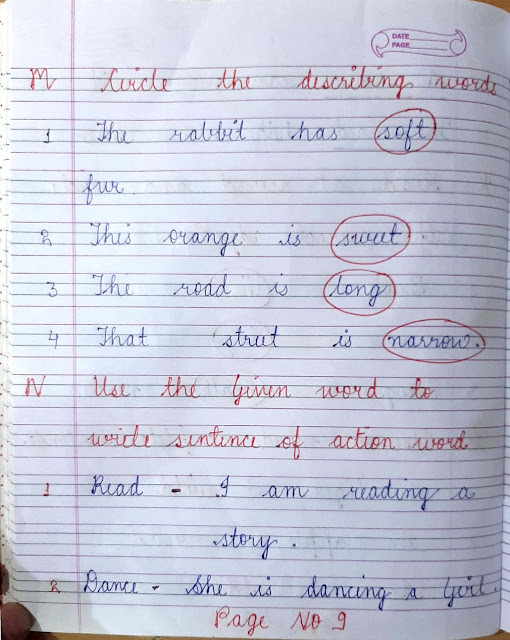 DATE
PAGE
M Circle the describing words
1 The rabbit has soft
fur
2 This orange is sweet.
3 The road is long
4 That street is narrow.
N Use the Given word to
write sintence of action word
1 Read - I am reading a
story.
2 Dance - She is dancing a Girl.
Page No 9